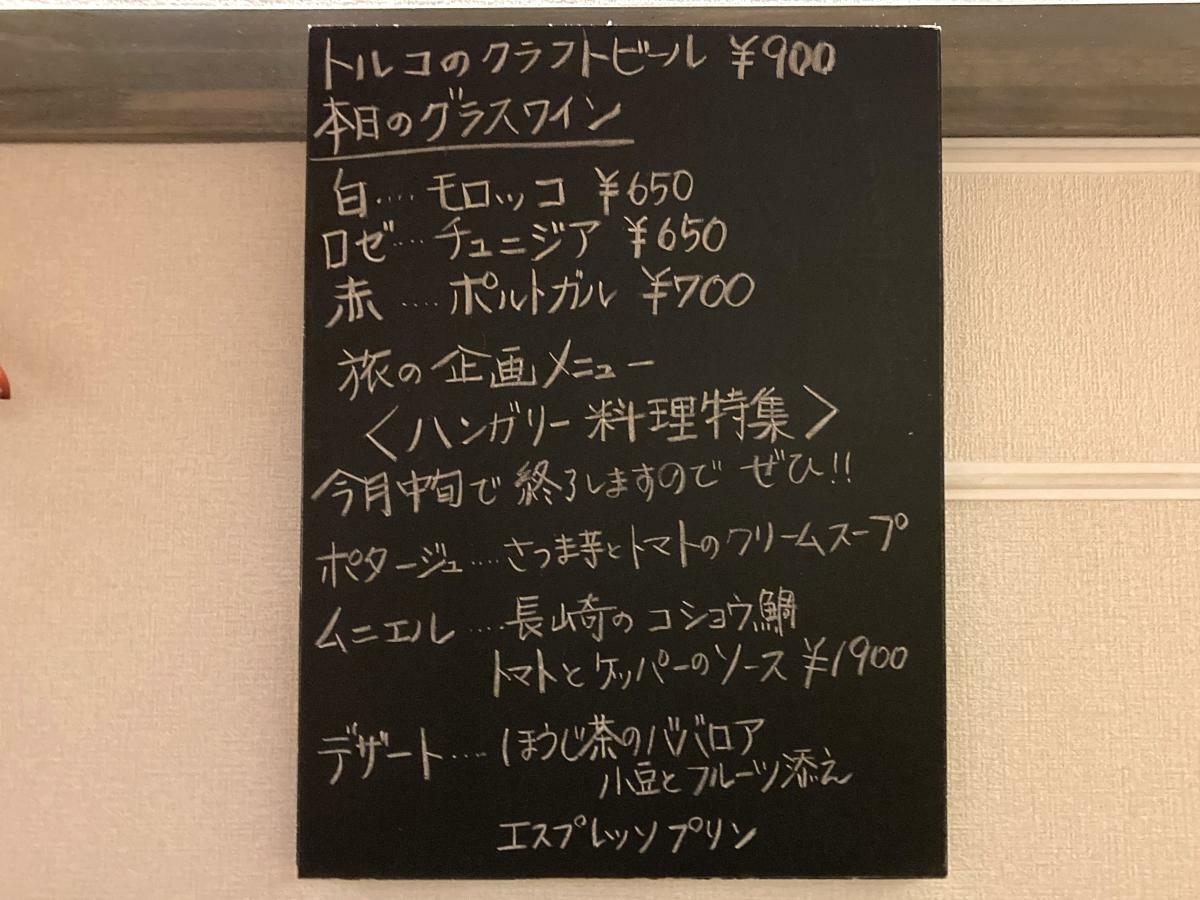 トルコのクラフトビール ¥900
本日のグラスワイン
白‥‥ モロッコ ¥650
ロゼ‥‥ チュニジア ¥650
赤 ‥‥ ポルトガル ¥700
旅の企画メニュー
〈ハンガリー料理特集〉
今月中旬で終了しますので ぜひ!!
ポタージュ‥‥さつま芋とトマトのクリームスープ
ムニエル ‥‥長崎のコショウ鯛
トマトとケッパーのソース ¥1900
デザート‥‥ほうじ茶のババロア
小豆とフルーツ添え
エスプレッソプリン